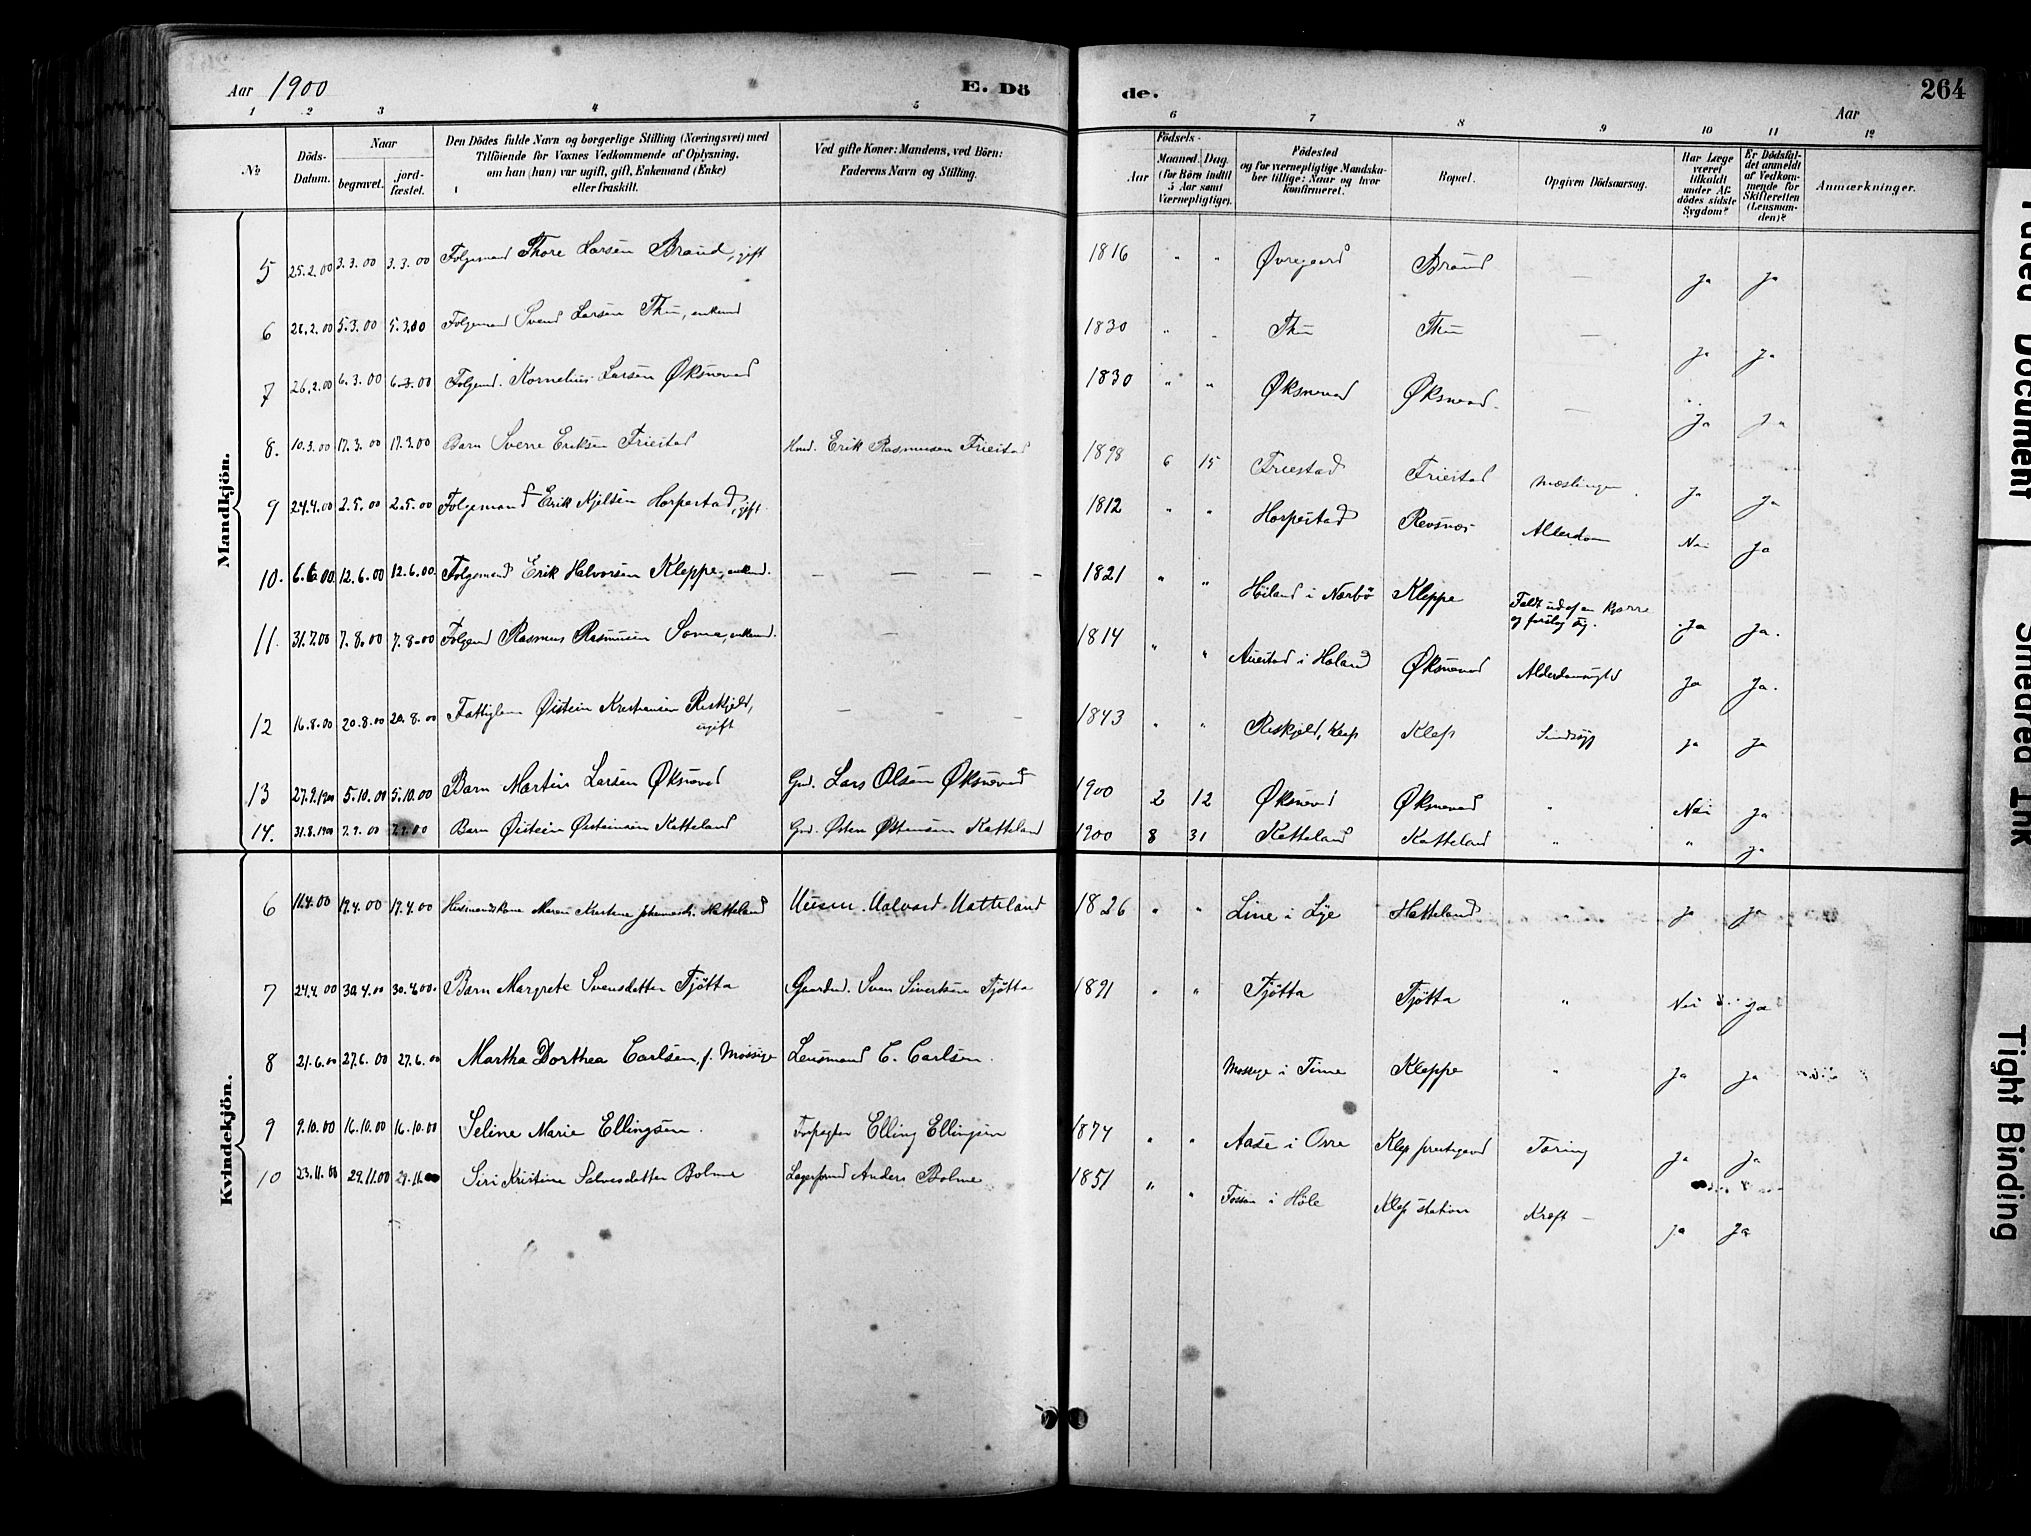 Aar 1900
E. Dö
de.
Aar
264
1 2 3 4 5 6 7 8 9 10 11 12
No
Döds-Datum.
Naar
begravet.
jord-fæstet.
Den Dödes fulde Navn og borgerlige Stilling (Næringsvei) med
Tilföiende for Voxnes Vedkommende af Oplysning,
om han (hun) var ugift, gift, Enkemand (Enke)
eller fraskilt.
Ved gifte Koner: Mandens, ved Börn:
Faderens Navn og Stilling.
Födsels-
Aar
Maaned. Dag.
(for Börn indtil
5 Aar samt
Værnepligtige).
Födested
og for værnepligtige Mandska-
ber tillige: Naar og hvor
konfirmeret.
Bopæl.
Opgiven Dödsaarsag.
Har Læge
været
tilkaldt
under Af-
dödes sidste
Sygdom?
Er Dödsfal-
det anmeldt
af Vedkom-
mende for
Skifteretten
(Lensman-
den)?
Anmærkninger.
Mandkjön.
5 25.2.00 3.3.00 3.3.00 Folgemand Thore Larsen Braud, gift 1816 " " Øvregaard Braud — Ja Ja
6 5.3.00 5.3.00 Folgemand Svend Larsen Thu, enkemd 1830 " " Thu Thu — Ja Ja
7 26.2.00 6.3.00 6.3.00 Folgemd. Kornelius Larsen Øksnevad 1830 " " Øksnevad Øksnevad — Ja Ja
8. 10.3.00 17.3.00 17.3.00 Barn Sverre Eriksen Friestad Hmd. Erik Rasmussen Friestad 1898 6 15 Friestad Friestad Mæslinger Ja Ja
9 24.4.00 2.5.00 2.5.00 Folgemand Erik Njelsen Horpestad, gift 1812 " " Horpestad Revsnæs Alderdom Nei Ja
10. 6.6.00 12.6.00 12.6.00 Folgemand Erik Halvorsen Kleppe, enkemd. — — — — 1821 " " Høiland i Nærbø Kleppe Faldt ud af en Kjærre
og forslog sig. Ja Ja
11. 31.7.00 7.8.00 7.8.00 Folgemd Rasmus Rasmusen Soma, enkemd. — 1814 " " Auestad i Høland Øksnevad Alderdomssvaghd Ja Ja.
12 16.8.00 20.8.00 20.8.00 Fattiglem Øistein Kristiansen Reskjeld,
ugift — — — 1843 " " Reskjeld, Klep Klep Sindssyg Ja Ja
13 27.9.1900 5.10.00 5.10.00 Barn Martin Larsen Øksnevad Gmd. Lars Olsen Øksnevad 1900 2 12 Øksnevad Øksnevad " Nei Ja
14. 31.8.1900 7.9.00 7.9.00 Barn Øistein Øisteinsen Katteland Gmd. Østen Østensen Katteland 1900 8 31 Katteland Katteland " " Ja
Kvindekjön.
6 11.4.00 19.4.00 19.4.00 Husmandskone Maren Kirstine Hatteland Halvard Hatteland 1826 " " Line i Lye Hatteland " Ja Ja
7 24.4.00 30.4.00 30.4.00. Barn Margrete Svensdatter Tjøtta Gaardmd. Sven Sivertsen Tjøtta 1891 " " Tjøtta Tjøtta " Nei Ja
8 21.6.00 27.6.00 27.6.00 Martha Dorthea Carlsen, f. Mossige Lensmand C. Carlsen. Mossige i Time Kleppe " Ja Ja
9 9.10.00 16.10.00 16.10.00 Seline Marie Ellingsen. Forpagter Elling Ellingsen 1874 " " Aase i Orre Klep prestegaard Tæring Ja Ja
10 23.11.00 29.11.00 29.11.00 Siri Kristine Salvesdatter Bolme Lagerformd Anders Bolme 1851 " " Fossan i Høle Klep station Kræft — Ja Ja
Faded Document
Smeared Ink
Tight Binding